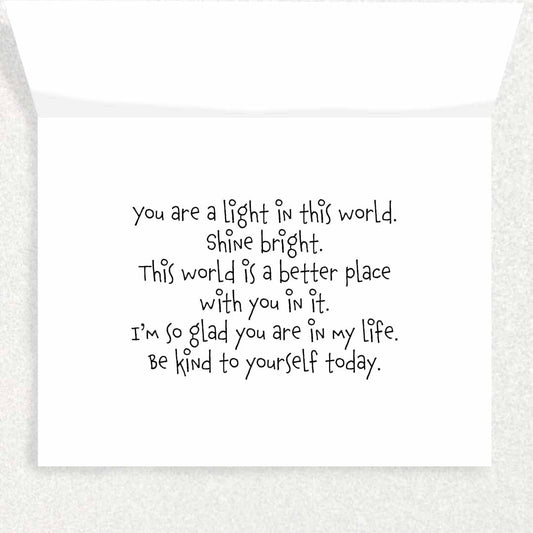 You are a light in this world.
Shine bright.
This world is a better place
with you in it.
I'm so glad you are in my life.
Be kind to yourself today.